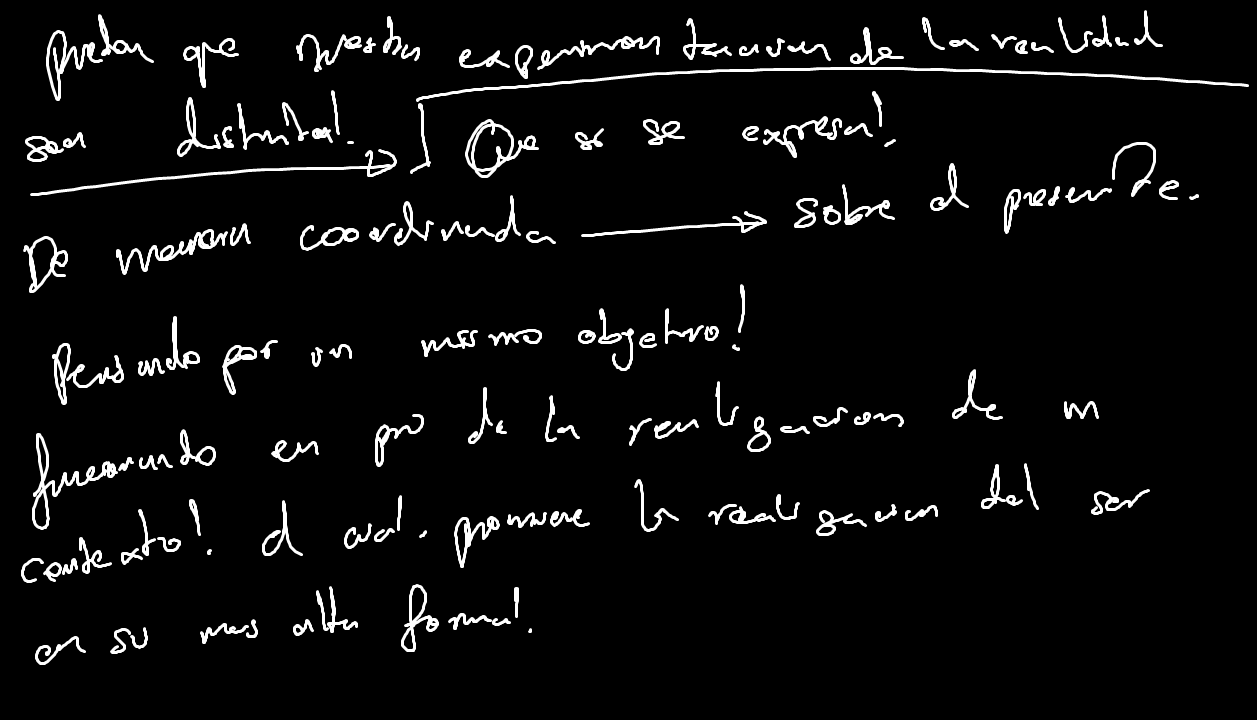 puedan que nuestra experimentacion de la realidad
sea distinta!. Que si se expresa!.
De manera coordinada → sobre el presente.
Pensando por un mismo objetivo!
funcionando en pro de la realizacion de un
contexto!. el cual. promueve la realizacion del ser
en su mas alta forma!.